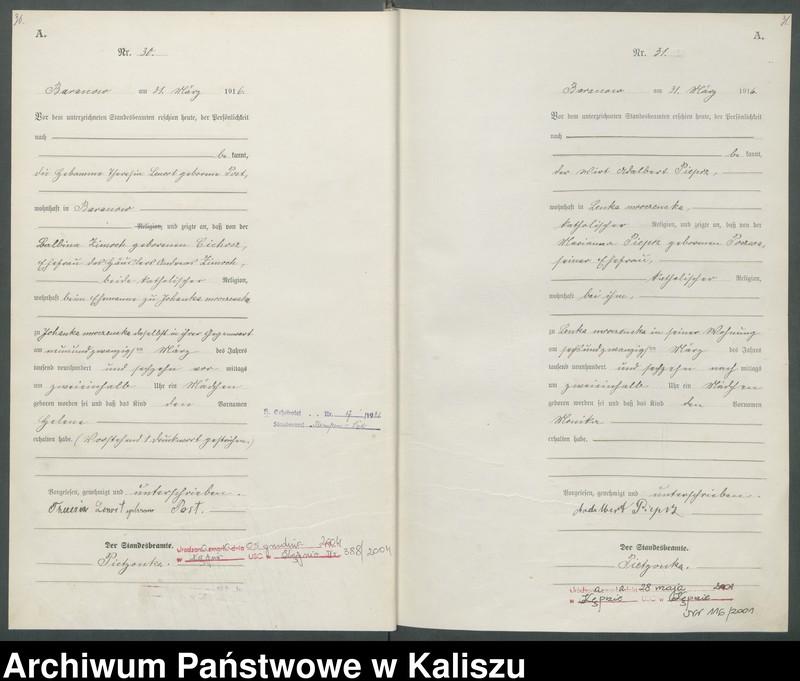 30.
A.
Nr. 30.
Baranow am 31. März 1916.
Vor dem unterzeichneten Standesbeamten erschien heute, der Persönlichkeit
nach
be kannt,
die Hebamme Theresia Lewot geborene Post,
wohnhaft in Baranow
Religion, und zeigte an, daß von der
Balbina Zimoch geborenen Cichosz,
Ehefrau des Häuslers Andreas Zimoch,
beide katholischer Religion,
wohnhaft beim Ehemanne zu Johanka mroczenska
zu Johanka mroczenska daselbst in ihrer Gegenwart
am neunundzwanzigsten März des Jahres
tausend neunhundert und sechzehn vor mittags
um zweieinhalb Uhr ein Mädchen
geboren worden sei und daß das Kind den Vornamen
Helene
erhalten habe. (Vorstehend 1 Druckwort gestrichen.)
Vorgelesen, genehmigt und unterschrieben.
Post.
Der Standesbeamte.
Pietzonka.
Nr. 1916
Standesamt
grudnia 2004
w USC w 388/2004
31.
A.
Nr. 31.
Baranow am 31. März 1916.
Vor dem unterzeichneten Standesbeamten erschien heute, der Persönlichkeit
nach
be kannt,
der Wirt Adalbert Pieprz,
wohnhaft in Lenka mroczenska,
katholischer Religion, und zeigte an, daß von der
Marianna Pieprz geborenen
seiner Ehefrau,
katholischer Religion,
wohnhaft bei ihm,
zu Lenka mroczenska in seiner Wohnung
am sechsundzwanzigsten März des Jahres
tausend neunhundert und sechzehn nach mittags
um zweieinhalb Uhr ein Mädchen
geboren worden sei und daß das Kind den Vornamen
Monika
erhalten habe.
Vorgelesen, genehmigt und unterschrieben.
Adalbert Pieprz
Der Standesbeamte.
Pietzonka.
28 maja 2001
w Kępnie USC w Kępnie
Nr 116/2001
Archiwum Państwowe w Kaliszu